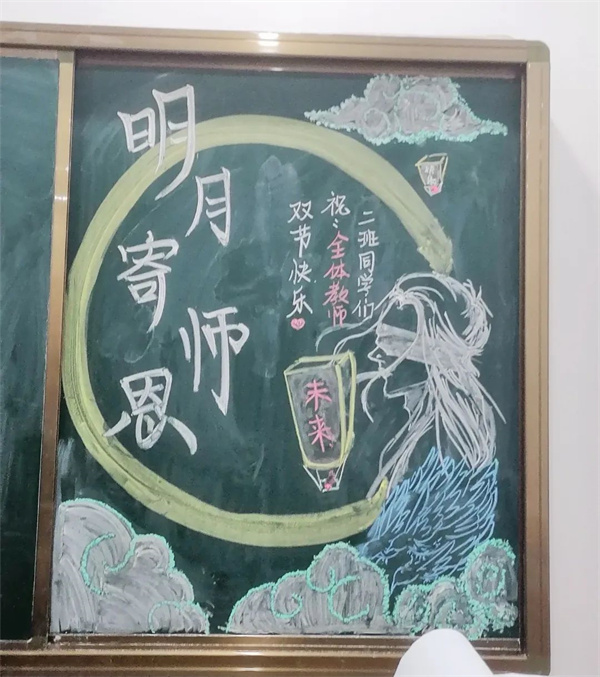 明月寄师恩
二班同学们
祝：全体教师
双节快乐
未来